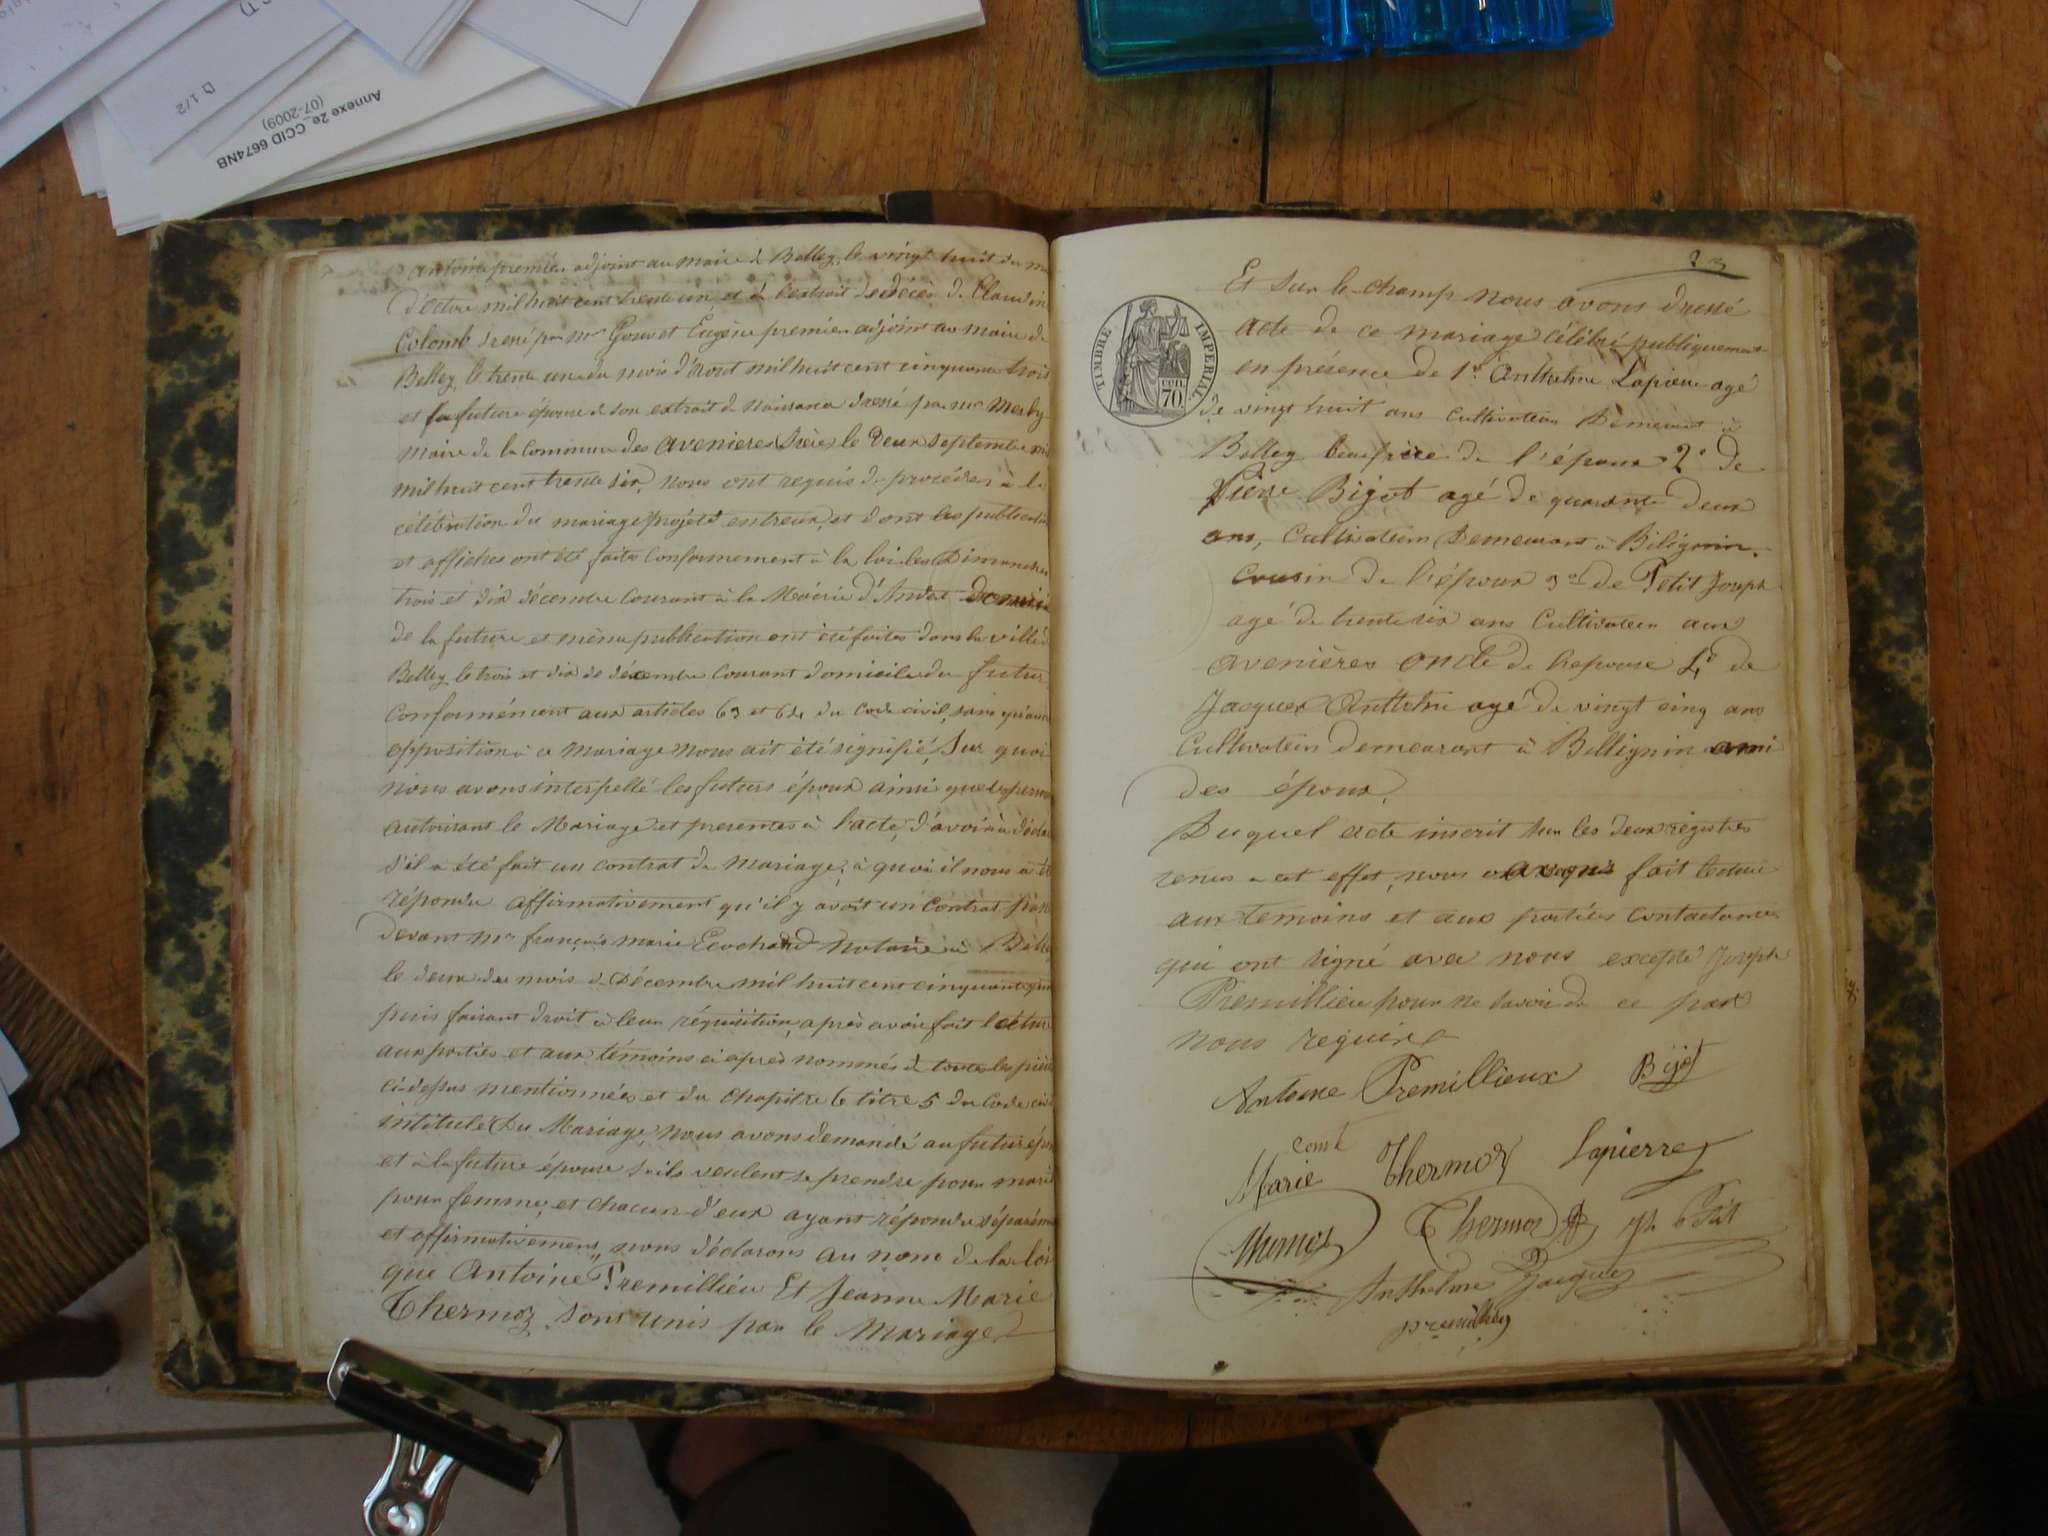 D 1/2
Annexe 2e_CCID 6674NB
(07-2009)
antoine premier adjoint au maire de Belley, le vingt huit du
d'octobre mil huit cent trente un et à l'extrait de décès de Claudine
Colomb dressé par mr Eugène premier adjoint au maire de
Belley le trente un du mois d'aout mil huit cent cinquante trois
et la future épouse de son extrait de naissance dressé par mr
maire de la commune des avenieres Isère le deux septembre
mil huit cent trente six, nous ont requis de procéder à la
célébration du mariage projeté entreux, et dont les publications
et affiches ont été faites conformement à la loi les Dimanches
trois et dix décembre courant à la Mairie d'Andert
de la future et même publication ont été faites dans la ville de
Belley le trois et dix de décembre courant domicile du futur,
conformément aux articles 63 et 64 du code civil, sans qu'aucune
opposition à ce mariage nous ait été signifié, Sur quoi
nous avons interpellé les futurs époux ainsi que les personnes
autorisant le Mariage et presentes à l'acte, d'avoir à déclarer
s'il a été fait un contrat de mariage; à quoi il nous a été
répondu affirmativement qu'il y avait un contrat passé
devant Me françois marie notaire à Belley
le deux du mois de Décembre mil huit cent cinquante
puis faisant droit à leur réquisition, après avoir fait lecture
aux parties et aux témoins ci après nommés de toutes les pièces
ci-dessus mentionnées et du chapitre 6 titre 5 du Code civil
intitulé Du Mariage, nous avons demandé au futur époux
et à la future épouse s'ils veulent se prendre pour mari
pour femme, et chacun d'eux ayant répondu séparément
et affirmativement, nous déclarons au nom de la loi
que Antoine Premillieu Et Jeanne Marie
Thermoz sont unis par le Mariage
23
TIMBRE IMPERIAL
70 cen.
Et sur le champ nous avons dressé
acte de ce mariage célébré publiquement
en présence de 1° Anthelme Lapierre agé
de vingt huit ans cultivateur Demeurant à
Belley beau frère de l'époux 2° de
Pierre Bigot agé de quarante deux
ans, Cultivateur Demeurant à Bilignin
cousin de l'époux 3° de Petit Joseph
agé de trente six ans Cultivateur aux
avenières oncle de l'epouse 4° de
Jacques Anthelme agé de vingt cinq ans
Cultivateur demeurant à Billignin ami
des époux.
Duquel acte inscrit sur les deux régistres
tenus à cet effet, nous avons fait lecture
aux temoins et aux parties contractantes
qui ont signé avec nous excepté Joseph
Premillieu pour ne savoir de ce par
nous require
Antoine Premillieux Bigot
Marie Thermoz Lapierre
Thermoz Petit
Anthelme Jacques